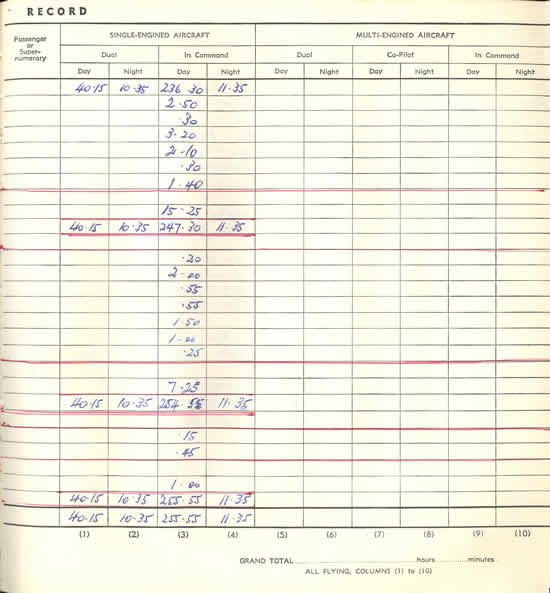 RECORD
Passenger or Super-numerary
SINGLE-ENGINED AIRCRAFT MULTI-ENGINED AIRCRAFT
Dual In Command Dual Co-Pilot In Command
Day Night Day Night Day Night Day Night Day Night
40.15 10.35 236.30 11.35
2.50
.30
3.20
2.10
.30
1.40
15-25
40.15 10.35 247.30 11.35
.20
2.00
.55
.55
1.50
1.00
.25
7.25
40.15 10.35 254.55 11.35
.15
.45
1.00
40.15 10.35 255.55 11.35
40.15 10.35 255.55 11.35
(1) (2) (3) (4) (5) (6) (7) (8) (9) (10)
GRAND TOTAL hours minutes
ALL FLYING, COLUMNS (1) to (10)